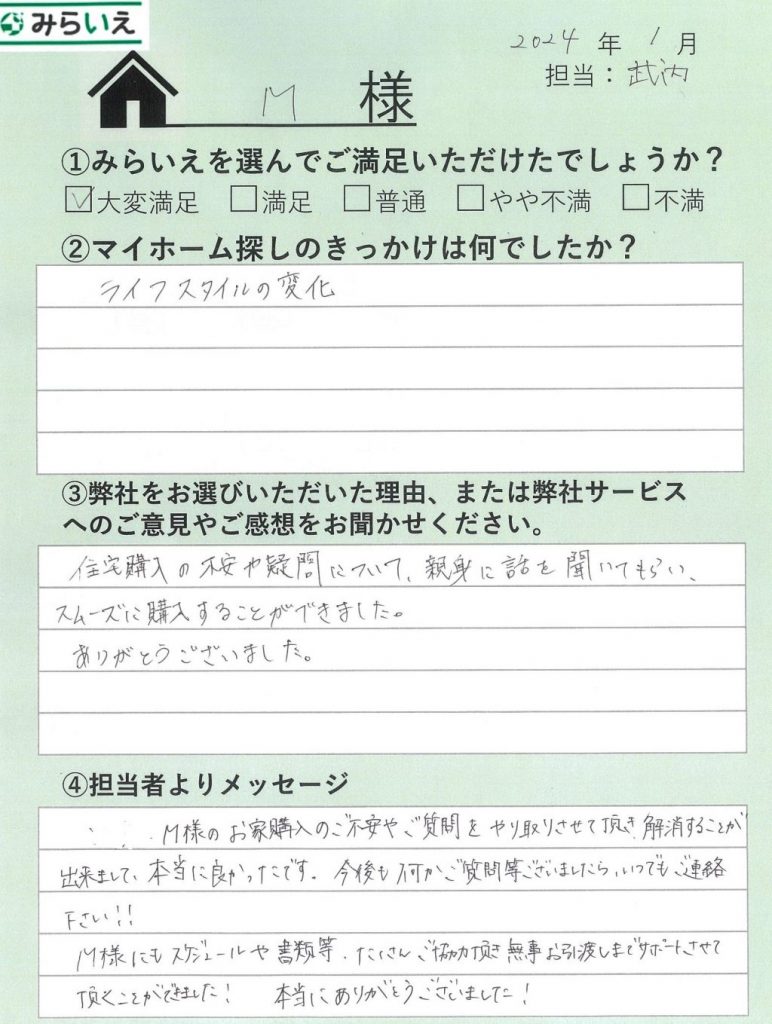 みらいえ
2024年1月
担当：武内
M 様
①みらいえを選んでご満足いただけたでしょうか？
☑大変満足 □満足 □普通 □やや不満 □不満
②マイホーム探しのきっかけは何でしたか？
ライフスタイルの変化
③弊社をお選びいただいた理由、または弊社サービス
へのご意見やご感想をお聞かせください。
住宅購入の不安や疑問について、親身に話を聞いてもらい、
スムーズに購入することができました。
ありがとうございました。
④担当者よりメッセージ
M様のお家購入のご不安やご質問をやり取りさせて頂き解消することが
出来まして、本当に良かったです。今後も何かご質問等ございましたら、いつでもご連絡
下さい!!
M様にもスケジュールや書類等、たくさんご協力頂き無事お引渡しまでサポートさせて
頂くことができました！ 本当にありがとうございました！